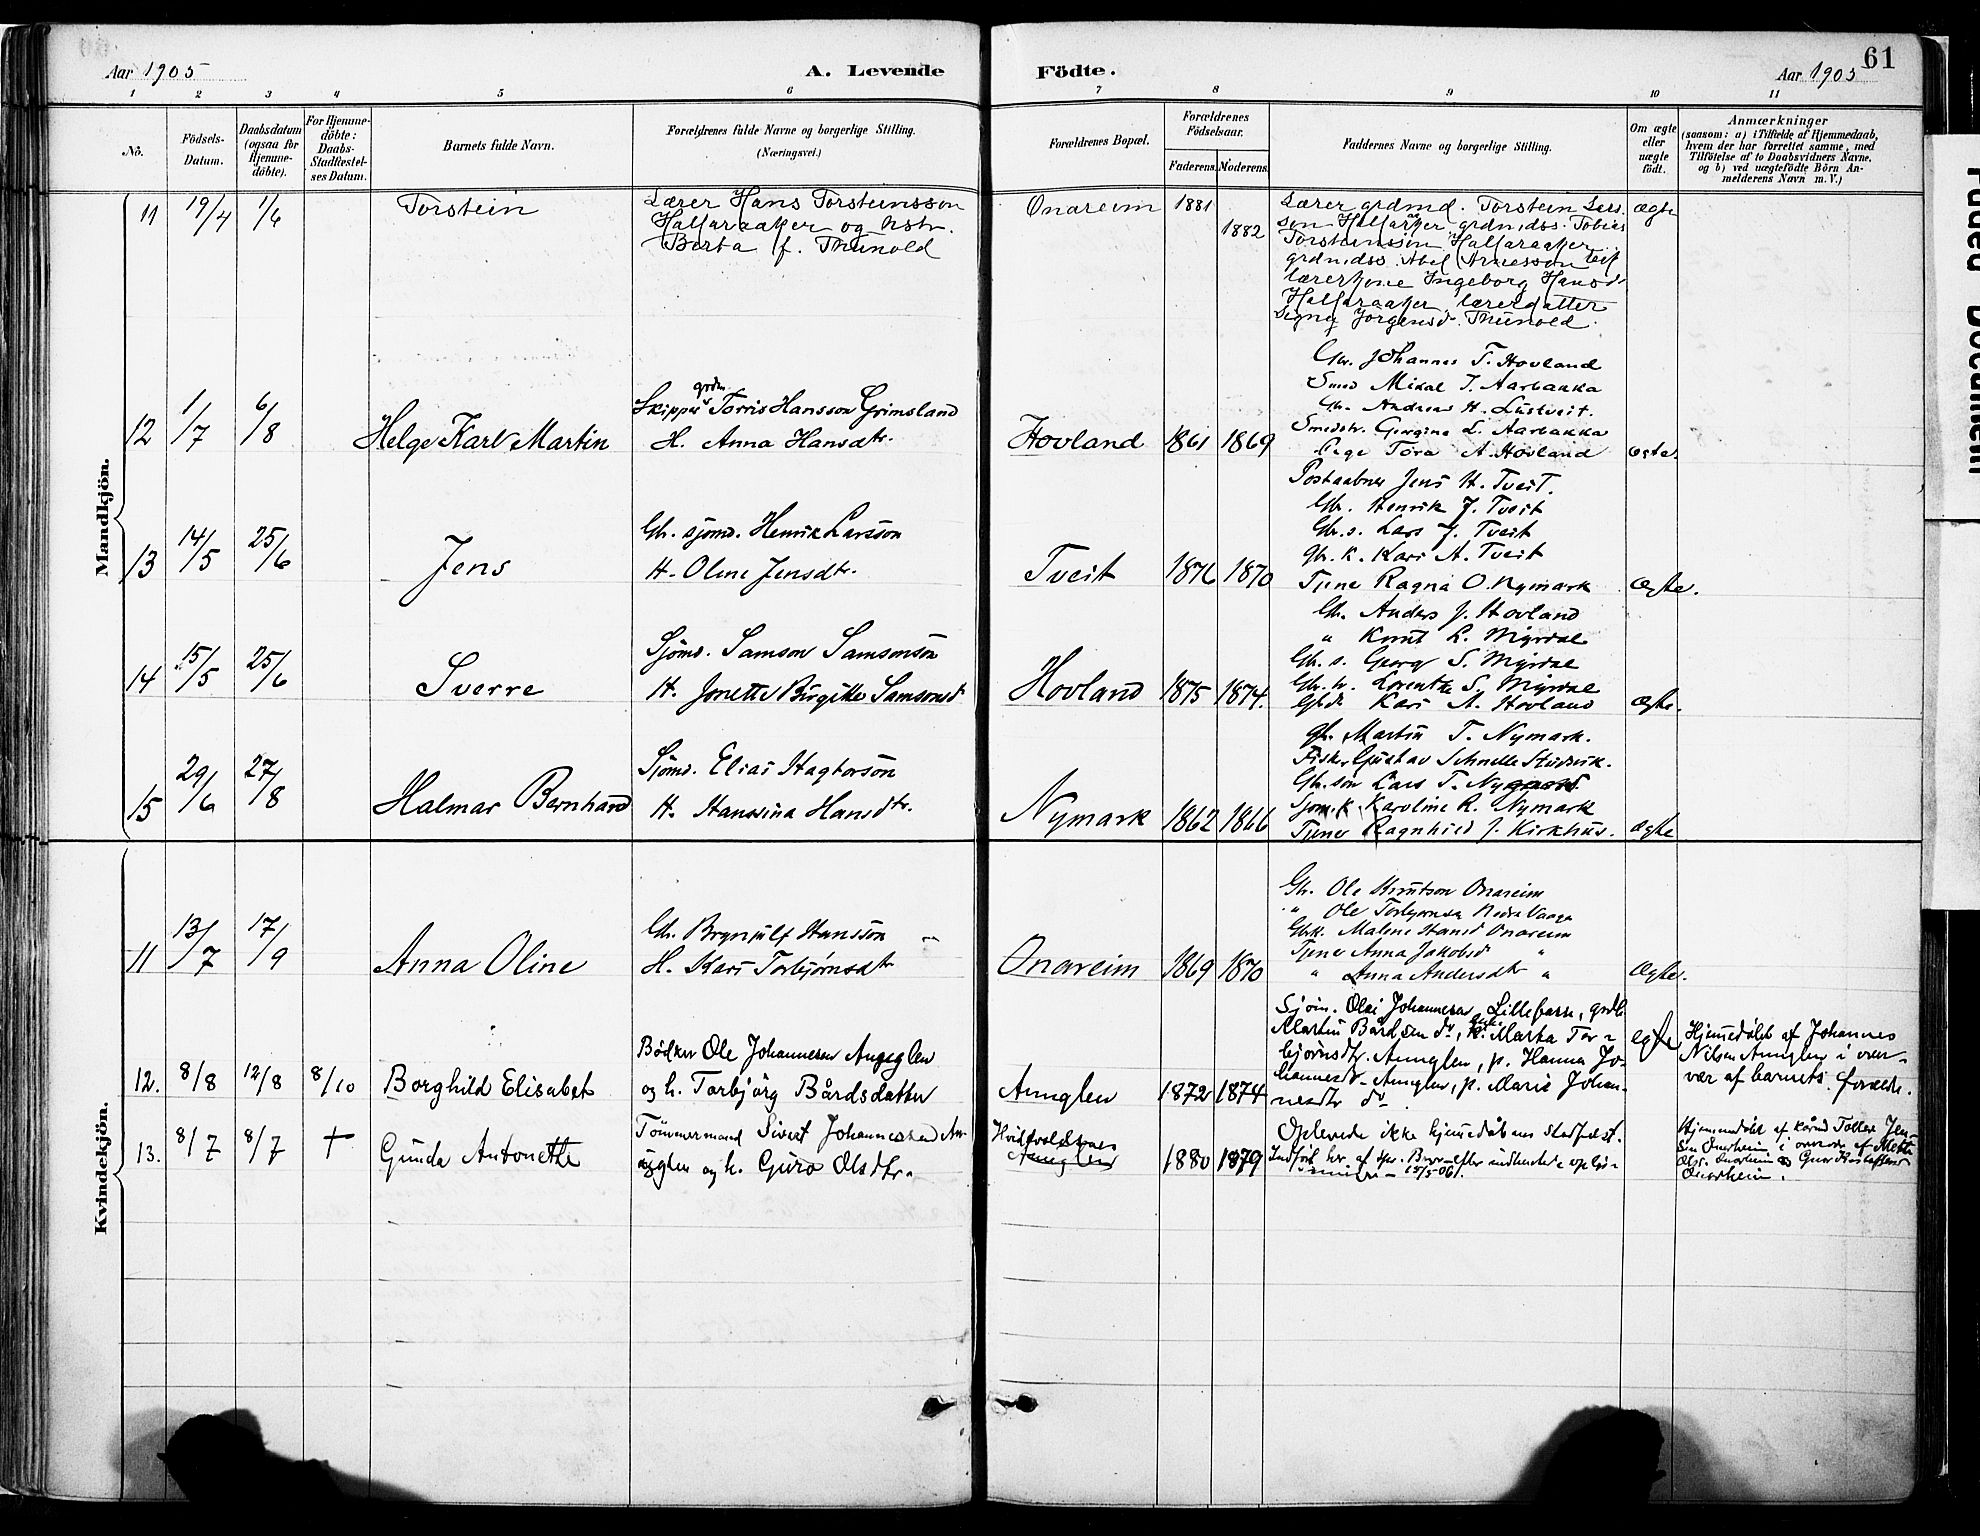 61
Aar 1905
A. Levende
Födte.
Aar 1905
1 2 3 4 5 6 7 8 9 10 11
No.
Födsels-Datum.
Daabsdatum (ogsaa for Hjemme-döbte).
For Hjemme-döbte: Daabs-Stadfæstel-ses Datum.
Barnets fulde Navn.
Forældrenes fulde Navne og borgerlige Stilling.
(Næringsvei.)
Forældrenes Bopæl.
Forældrenes Födselsaar.
Faderens. Moderens.
Faddernes Navne og borgerlige Stilling.
Om ægte eller uægte födt.
Anmærkninger
(saasom: a) i Tilfælde af Hjemmedaab, hvem der har forrettet samme, med Tilföielse af to Daabsvidners Navne, og b) ved uægtefödte Börn An-melderens Navn m. V.)
Mandkjön.
11 19/4 1/6 Torstein
Lærer Hans Torsteinsson
Halfaraaker og hstr.
Berta f. Thunold
Onareim 1881 1882
Lærer grdmd. Torstein Lars-
son Halfaraaker grdmdss. Tobias
Torsteinsson Halfaraaker
grdmdss. Abel Arnesson
lærerkone Ingeborg Hansd.
Halfaraaker, lærerdatter
Signy Jörgensd. Thunold.
ægte
12 1/7 6/8 Helge Karl Martin
Skipper grdm. Torris Hansson Grimsland
H. Anna Hansdtr.
Hovland 1861 1869
Gbr. Johannes T. Hovland
Smed Mikal T. Aarbakka
Gbr. Andreas H. Lustveit.
Smedstr. Gurgina L. Aarbakka
Pige Tora A. Hovland
ægte.
13 14/5 25/6 Jens
Gbr. sjömd. Henrik Larsson
H. Oline Jensdtr.
Tveit 1876 1870
Postaabner Jens H. Tveit.
Gbr. Henrik J. Tveit
Gbr. s. Lars J. Tveit
gbr. k. Kari A. Tveit
Tjene Ragna O. Nymark
Ægte.
14 15/5 25/6 Sverre
Sjömd. Samson Samsonson
H. Jonette Birgitte Samsonsd
Hovland 1875 1874.
Gbr. Anders J. Hovland
" Knut L. Myrdal
Gbr. s. Georg S. Myrdal
Lorentze S. Myrdal
Kari A. Hovland
Ægte.
15 29/6 27/8 Halmar Bernhard
Sjömd. Elias Hagtorson
H. Hanssina Hansdtr.
Nymark 1862 1866
gbr. Martin T. Nymark.
Fisker Gustav Schnelle
Gbr. sön Lars T. Nygaard
Sjöm. k. Karoline R. Nymark
Tjener Ragnhild J. Kirkhus.
Ægte
Kvindekjön.
11 13/7 17/9 Anna Oline
Gbr. Brynjulf Hansson
H. Kari Torbjørnsdtr
Onareim 1869 1870
Gbr. Ole Knutson Onareim
" Ole Torbjørnsen Nedre Vaage
Gbrk. Malene Hansd Onareim
Tjene Anna Jakobsd "
" Anna Andersdtr "
Ægte.
12. 8/8 12/8 8/10 Borghild Elisabet
Bödker Ole Johannesen
og h. Torbjörg Bårdsdatter
Aunglen 1872 1874
Sjöm. Olai Johannesen Lillebassen, grdb.
Martin Bårdsen do, Marta Tor-
bjørnsdtr. Aunglen, p. Hanna Jo-
hannesdtr Aunglen, p. Marie Johan-
nesdtr do.
egte
Hjemmedöbt af Johannes
Nilsen Aunglen i over-
vær af barnets foræld.
13. 8/7 8/7 † Gunda Antonette
Tömmermand Sivert Johannesen
og h. Guro Olsdtr.
Aunglen 1880 1879
Oplevede ikke hjemmedåbens stadfæst.
Indfört her af spr. efter indhentede oplys-
ninger 15/5-06.
Hjemmedöbt af
Onarheim i overvær af
Onarheim.